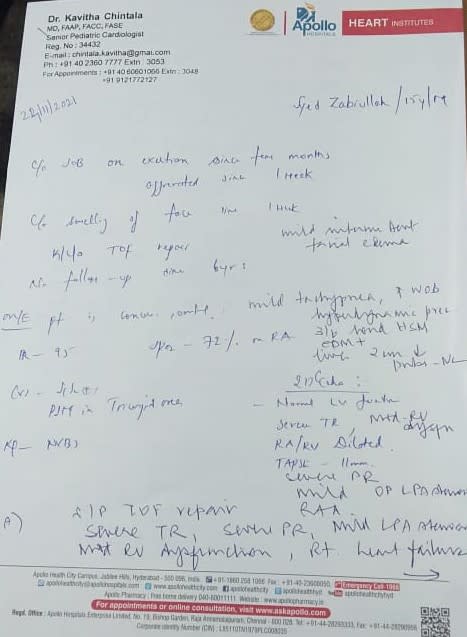 Dr. Kavitha Chintala
MD, FAAP, FACC, FASE
Senior Pediatric Cardiologist
Reg. No : 34432
E-mail : chintala.kavitha@gmai.com
Ph : +91 40 2360 7777 Extn : 3053
For Appointments : +91 40 60601066 Extn : 3048
+91 9121772127
Apollo
HOSPITALS
HEART INSTITUTES
22/11/2021
Syed Zabiullah / 15y / M
C/o SOB on exertion since few months
aggravated since 1 week
C/o swelling of face since 1 week
mild
facial edema
K/c/o TOF repair
No follow-up since 6yrs :
O/E pt is conscious, mild tachypnea, ↑ WOB
hyperdynamic prec
HR - 95 SpO2 - 72% on RA 3/6 HSM
EDM +
liver 2 cm ↓
2D Echo :
PSM in Tricuspid area
- Normal LV function
Severe TR, Mod RV dysfn
RA/RV Dilated
TAPSE - 11mm
severe PR
mild LPA stenosis
RAA
A) S/P TOF repair
Severe TR, Severe PR, Mild LPA stenosis
Mod RV dysfunction, Rt. heart failure
Apollo Health City Campus, Jubilee Hills, Hyderabad - 500 096, India. +91-1860 258 1066 Fax : +91-40-23608050. Emergency Call-1066
www.apollohealthcity.com apollohealthcity
Apollo Pharmacy : Free home delivery 040-60011111. Website : www.apollopharmacy.in
For appointments or online consultation, visit www.askapollo.com
Regd. Office : Apollo Hospitals Enterprise Limited, No. 19, Bishop Garden, Raja Annamalaipuram, Chennai - 600 028. Tel : +91-44-28293333, Fax: +91-44-28290956
Corporate Identity Number (CIN) : L85110TN1979PLC008035